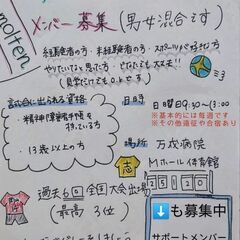 molten
メンバー募集(男女混合です)
経験者の方・未経験者の方・スポーツが好きな方
やりたいなと思った方・どなたでも大丈夫!!
(見学だけでもOKです)
試合に出られる資格
・精神障害者手帳を
持っている方
・13歳以上の方
日時
日曜日9:30~13:00
※基本的には毎週です
※その他遠征や合宿あり
場所
万成病院
Mホール体育館
志
過去6回全国大会出場
(最高3位)
2
5
2
0
⬇️も募集中
サポートメンバー